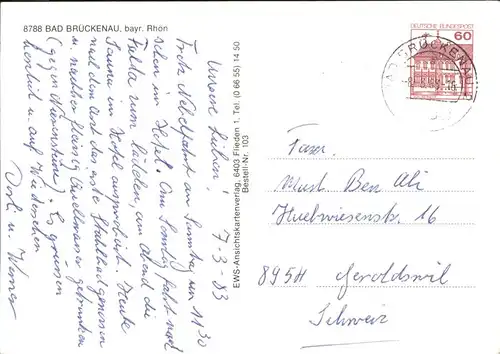 8788 BAD BRÜCKENAU, bayr. Rhön
7-3-83
Unsere Lieben!
Trotz Nebelfahrt am Samstag um 11 30
schon im Hotel. Am Sonntag Fahrt nach
Fulda zum bülden, am abend die
Sauna im Hotel ausprobiert. Heute
nach dem Arzt das erste Stahlbad genossen
u. nachher fleissig Quellwasser getrunken
(gegen Nierenstein). Es grüssen
herzlich u. auf Wiedersehen
Dorli u. Werner
EWS-Ansichtskartenverlag, 6403 Flieden 1, Tel. (0 66 55) 14 50
Bestell-Nr. 103
DEUTSCHE BUNDESPOST
60
BAD BRÜCKENAU
Fam.
Must. Ben Ali
Huebwiesenstr. 16
8954 Geroldswil
Schweiz